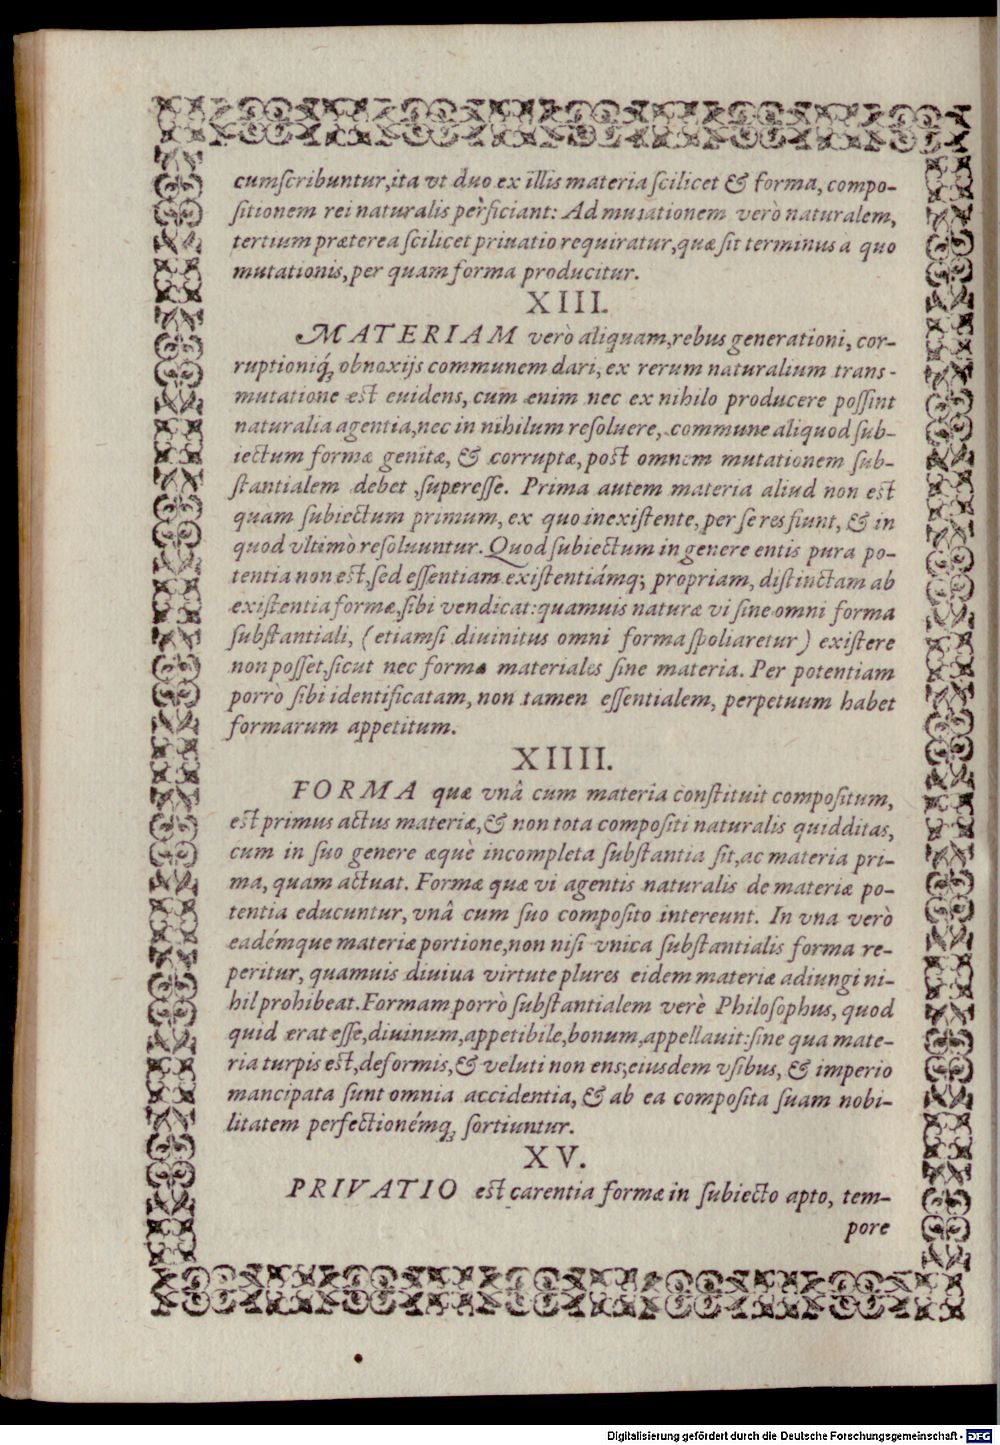 cumſcribuntur, ita vt duo ex illis materia ſcilicet & forma, compo-
ſitionem rei naturalis perficiant: Ad mutationem verò naturalem,
tertium præterea ſcilicet priuatio requiratur, quæ ſit terminus a quo
mutationis, per quam forma producitur.
XIII.
MATERIAM verò aliquam, rebus generationi, cor-
ruptioniq́ꝫ obnoxijs communem dari, ex rerum naturalium trans-
mutatione est euidens, cum ænim nec ex nihilo producere poſſint
naturalia agentia, nec in nihilum reſoluere, commune aliquod ſub-
iectum formæ genitæ, & corruptæ, post omnem mutationem ſub-
ſtantialem debet ſupereſſe. Prima autem materia aliud non est
quam ſubiectum primum, ex quo inexiſtente, per ſe res fiunt, & in
quod vltimò reſoluuntur. Quod ſubiectum in genere entis pura po-
tentia non est, ſed eſſentiam exiſtentiámq; propriam, diſtinctam ab
exiſtentia formæ, ſibi vendicat: quamuis naturæ vi ſine omni forma
ſubſtantiali, (etiamſi diuinitus omni forma ſpoliaretur) exiſtere
non poſſet, ſicut nec formæ materiales ſine materia. Per potentiam
porrò ſibi identificatam, non tamen eſſentialem, perpetuum habet
formarum appetitum.
XIIII.
FORMA quæ vnâ cum materia conſtituit compoſitum,
est primus actus materiæ, & non tota compoſiti naturalis quidditas,
cum in ſuo genere æquè incompleta ſubſtantia ſit, ac materia pri-
ma, quam actuat. Formæ quæ vi agentis naturalis de materiæ po-
tentia educuntur, vnâ cum ſuo compoſito intereunt. In vna verò
eadémque materiæ portione, non niſi vnica ſubſtantialis forma re-
peritur, quamuis diuiua virtute plures eidem materiæ adiungi ni-
hil prohibeat. Formam porrò ſubſtantialem verè Philoſophus, quod
quid erat eſſe, diuinum, appetibile, bonum, appellauit: ſine qua mate-
ria turpis est, deformis, & veluti non ens; eiusdem vſibus, & imperio
mancipata ſunt omnia accidentia, & ab ea compoſita ſuam nobi-
litatem perfectionémq́ꝫ ſortiuntur.
XV.
PRIVATIO est carentia formæ in ſubiecto apto, tem-
pore
Digitalisierung gefördert durch die Deutsche Forschungsgemeinschaft - DFG